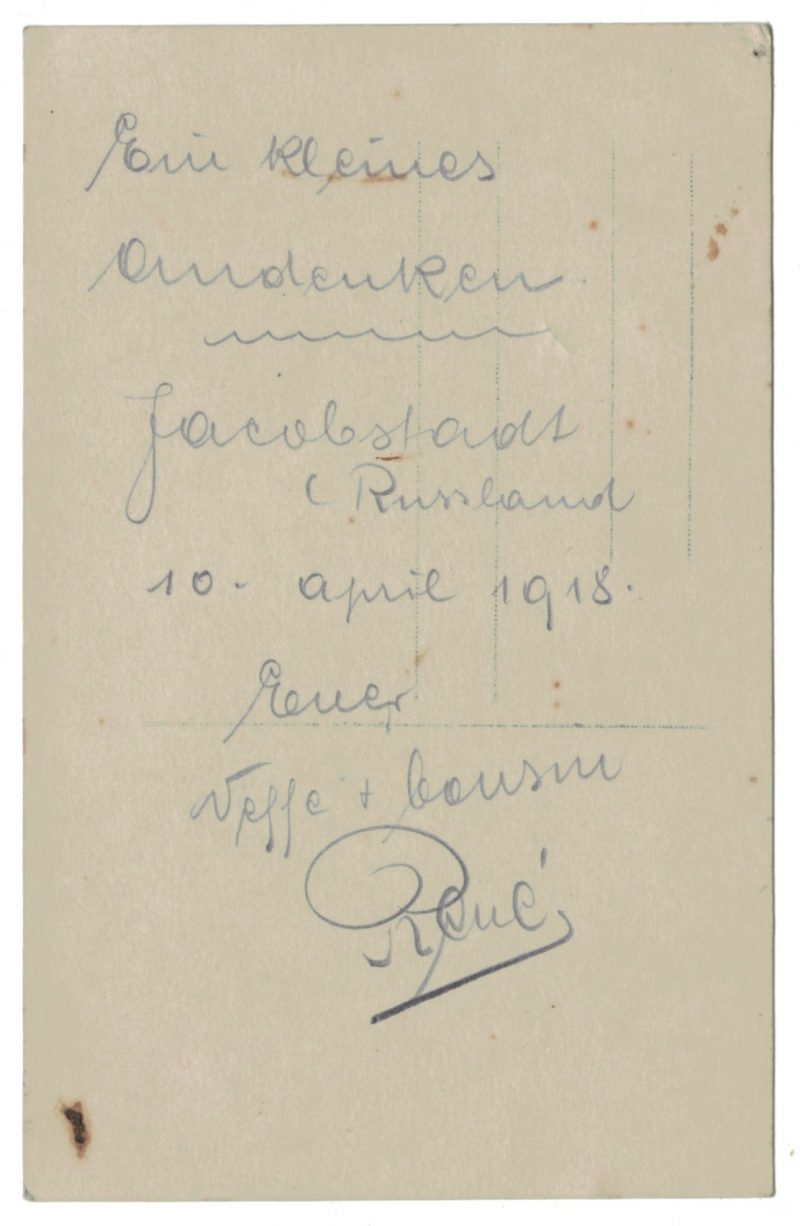 Ein kleines
Andenken.
Jacobstadt
( Russland
10. april 1918.
Euer
Neffe + Cousin
René